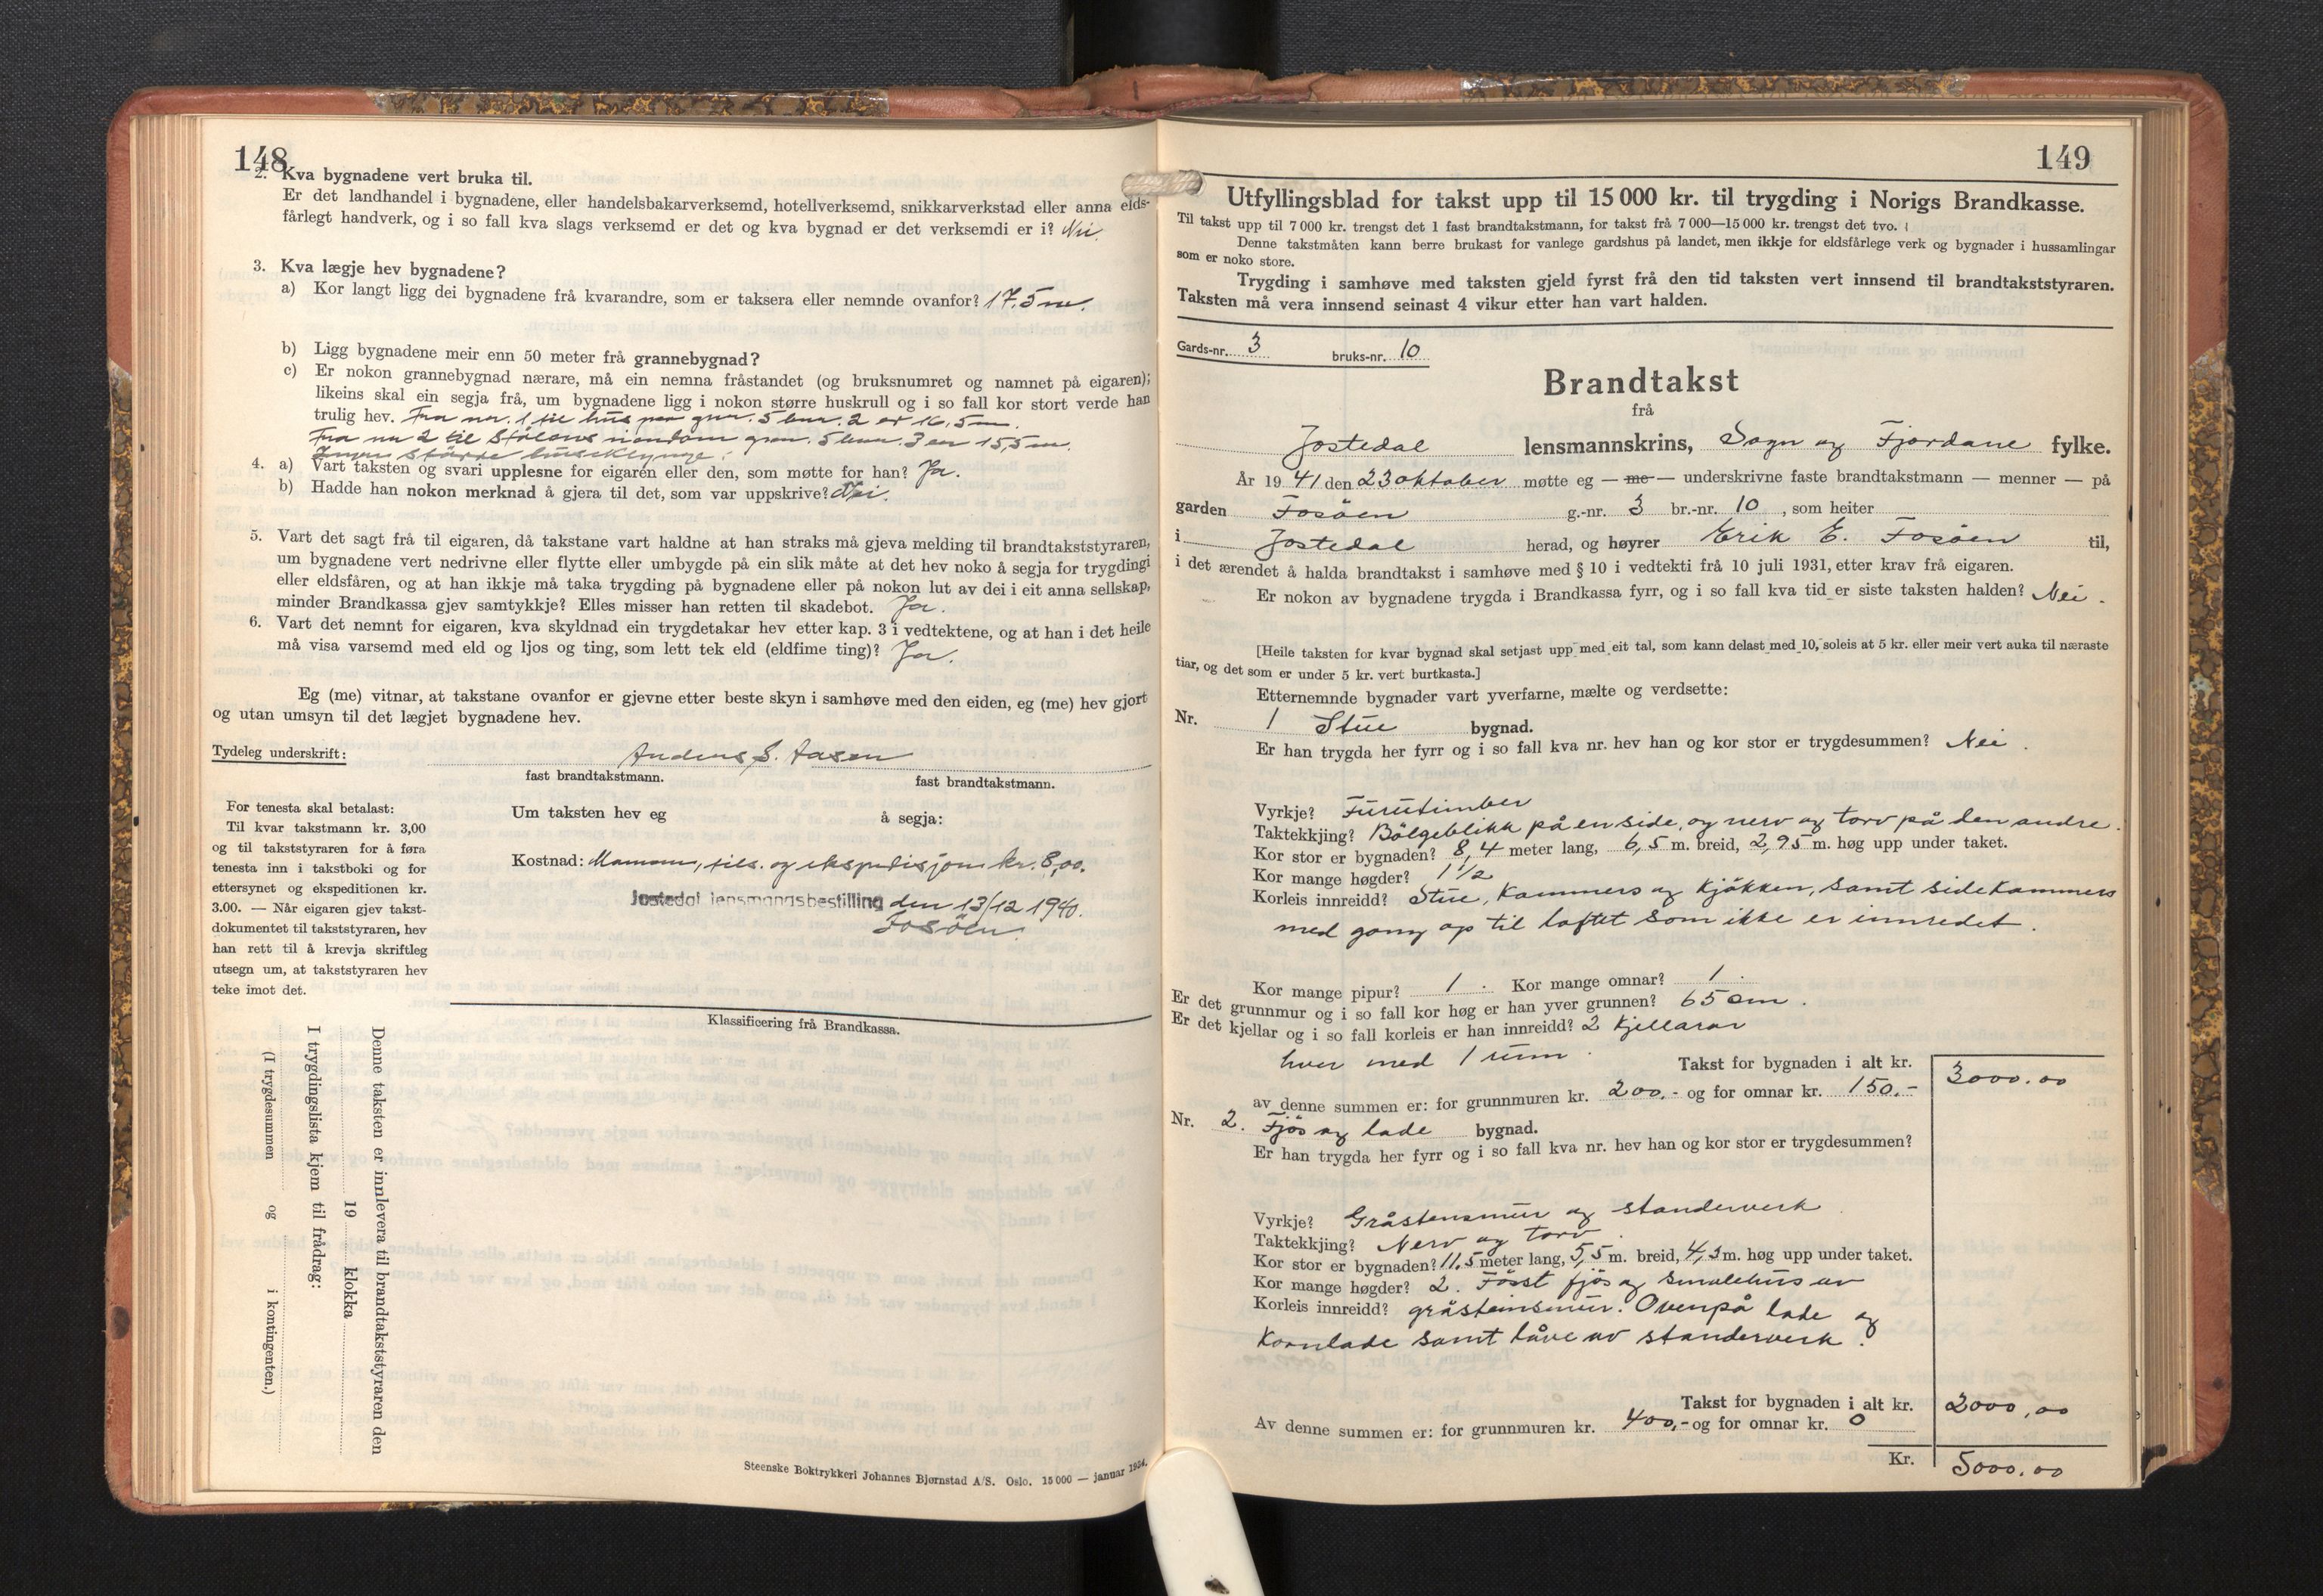 148
2. Kva bygnadene vert bruka til.
Er det landhandel i bygnadene, eller handelsbakarverksemd, hotellverksemd, snikkarverkstad eller anna elds-
fårlegt handverk, og i so fall kva slags verksemd er det og kva bygnad er det verksemdi er i? Nei.
3. Kva lægje hev bygnadene?
a) Kor langt ligg dei bygnadene frå kvarandre, som er taksera eller nemnde ovanfor? 17,5 m.
b) Ligg bygnadene meir enn 50 meter frå grannebygnad?
c) Er nokon grannebygnad nærare, må ein nemna fråstandet (og bruksnumret og namnet på eigaren);
likeins skal ein segja frå, um bygnadene ligg i nokon større huskrull og i so fall kor stort verde han
trulig hev. Fra nr. 1 til hus paa gnr. 5 bnr. 2 er 16,5 m.
Fra nr 2 til gnr. 5 bnr. 3 er 15,5 m.
Ingen större huseklynge.
4. a) Vart taksten og svari upplesne for eigaren eller den, som møtte for han? Ja.
b) Hadde han nokon merknad å gjera til det, som var uppskrive? Nei.
5. Vart det sagt frå til eigaren, då takstane vart haldne at han straks må gjeva melding til brandtakststyraren,
um bygnadene vert nedrivne eller flytte eller umbygde på ein slik måte at det hev noko å segja for trygdingi
eller eldsfåren, og at han ikkje må taka trygding på bygnadene eller på nokon lut av dei i eit anna sellskap,
minder Brandkassa gjev samtykkje? Elles misser han retten til skadebot. Ja.
6. Vart det nemnt for eigaren, kva skyldnad ein trygdetakar hev etter kap. 3 i vedtektene, og at han i det heile
må visa varsemd med eld og ljos og ting, som lett tek eld (eldfime ting)? Ja.
Eg (me) vitnar, at takstane ovanfor er gjevne etter beste skyn i samhøve med den eiden, eg (me) hev gjort
og utan umsyn til det lægjet bygnadene hev.
Tydeleg underskrift: Anders S. Aasen
fast brandtakstmann. fast brandtakstmann.
For tenesta skal betalast:
Til kvar takstmann kr. 3,00
og til takststyraren for å føra
tenesta inn i takstboki og for
ettersynet og ekspeditionen kr.
3.00. — Når eigaren gjev takst-
dokumentet til takststyraren, hev
han rett til å krevja skriftleg
utsegn um, at takststyraren hev
teke imot det.
Um taksten hev eg å segja:
Kostnad: og ekspedisjon kr. 8,00.
Jostedal lensmannsbestilling den 13/12 1940.
Fosöen.
Klassificering frå Brandkassa.
Denne taksten er innlevera til brandtakststyraren den
19 klokka
I trygdingslista kjem til frådrag:
(I trygdesummen og i kontingenten.)
Steenske Boktrykkeri Johannes Bjørnstad A/S. Oslo. 15 000 — januar 1934.
149
Utfyllingsblad for takst upp til 15 000 kr. til trygding i Norigs Brandkasse.
Til takst upp til 7 000 kr. trengst det 1 fast brandtakstmann, for takst frå 7 000—15 000 kr. trengst det tvo.
Denne takstmåten kann berre brukast for vanlege gardshus på landet, men ikkje for eldsfårlege verk og bygnader i hussamlingar
som er noko store.
Trygding i samhøve med taksten gjeld fyrst frå den tid taksten vert innsend til brandtakststyraren.
Taksten må vera innsend seinast 4 vikur etter han vart halden.
Gards-nr. 3 bruks-nr. 10
Brandtakst
frå
Jostedal lensmannskrins, Sogn og Fjordane fylke.
År 1941 den 23 oktober møtte eg — me — underskrivne faste brandtakstmann — menner — på
garden Fosöen g.-nr. 3 br.-nr. 10, som heiter
i Jostedal herad, og høyrer Erik E. Fosöen til,
i det ærendet å halda brandtakst i samhøve med § 10 i vedtekti frå 10 juli 1931, etter krav frå eigaren.
Er nokon av bygnadene trygda i Brandkassa fyrr, og i so fall kva tid er siste taksten halden? Nei.
[Heile taksten for kvar bygnad skal setjast upp med eit tal, som kann delast med 10, soleis at 5 kr. eller meir vert auka til næraste
tiar, og det som er under 5 kr. vert burtkasta.]
Etternemnde bygnader vart yverfarne, mælte og verdsette:
Nr. 1 Stue bygnad.
Er han trygda her fyrr og i so fall kva nr. hev han og kor stor er trygdesummen? Nei.
Vyrkje? Furutimber
Taktekkjing? Bölgeblikk på en side, og nerv og torv på den andre.
Kor stor er bygnaden? 8,4 meter lang, 6,5 m. breid, 2,95 m. høg upp under taket.
Kor mange høgder? 1½
Korleis innreidd? Stue, Kammers og Kjökken, samt sideKammers
med gang op til loftet som ikke er innredet.
Kor mange pipur? 1. Kor mange omnar? 1.
Er det grunnmur og i so fall kor høg er han yver grunnen? 65 cm.
Er det kjellar og i so fall korleis er han innreidd? 2 Kjellarar
hver med 1 rum. Takst for bygnaden i alt kr. 3000.00
av denne summen er: for grunnmuren kr. 200.- og for omnar kr. 150.-
Nr. 2. Fjös og lade bygnad.
Er han trygda her fyrr og i so fall kva nr. hev han og kor stor er trygdesummen?
Vyrkje? Gråstensmur og standerverk
Taktekkjing? Nerv og torv.
Kor stor er bygnaden? 11,5 meter lang, 5,5 m. breid, 4,3 m. høg upp under taket.
Kor mange høgder? 2. Först fjös og smalehus av
Korleis innreidd? gråsteinsmur. Ovenpå lade og
Kornlade samt låve av standerverk.
Takst for bygnaden i alt kr. 2000,00
Av denne summen er: for grunnmuren kr. 400,- og for omnar kr. 0
Kr. 5000.00